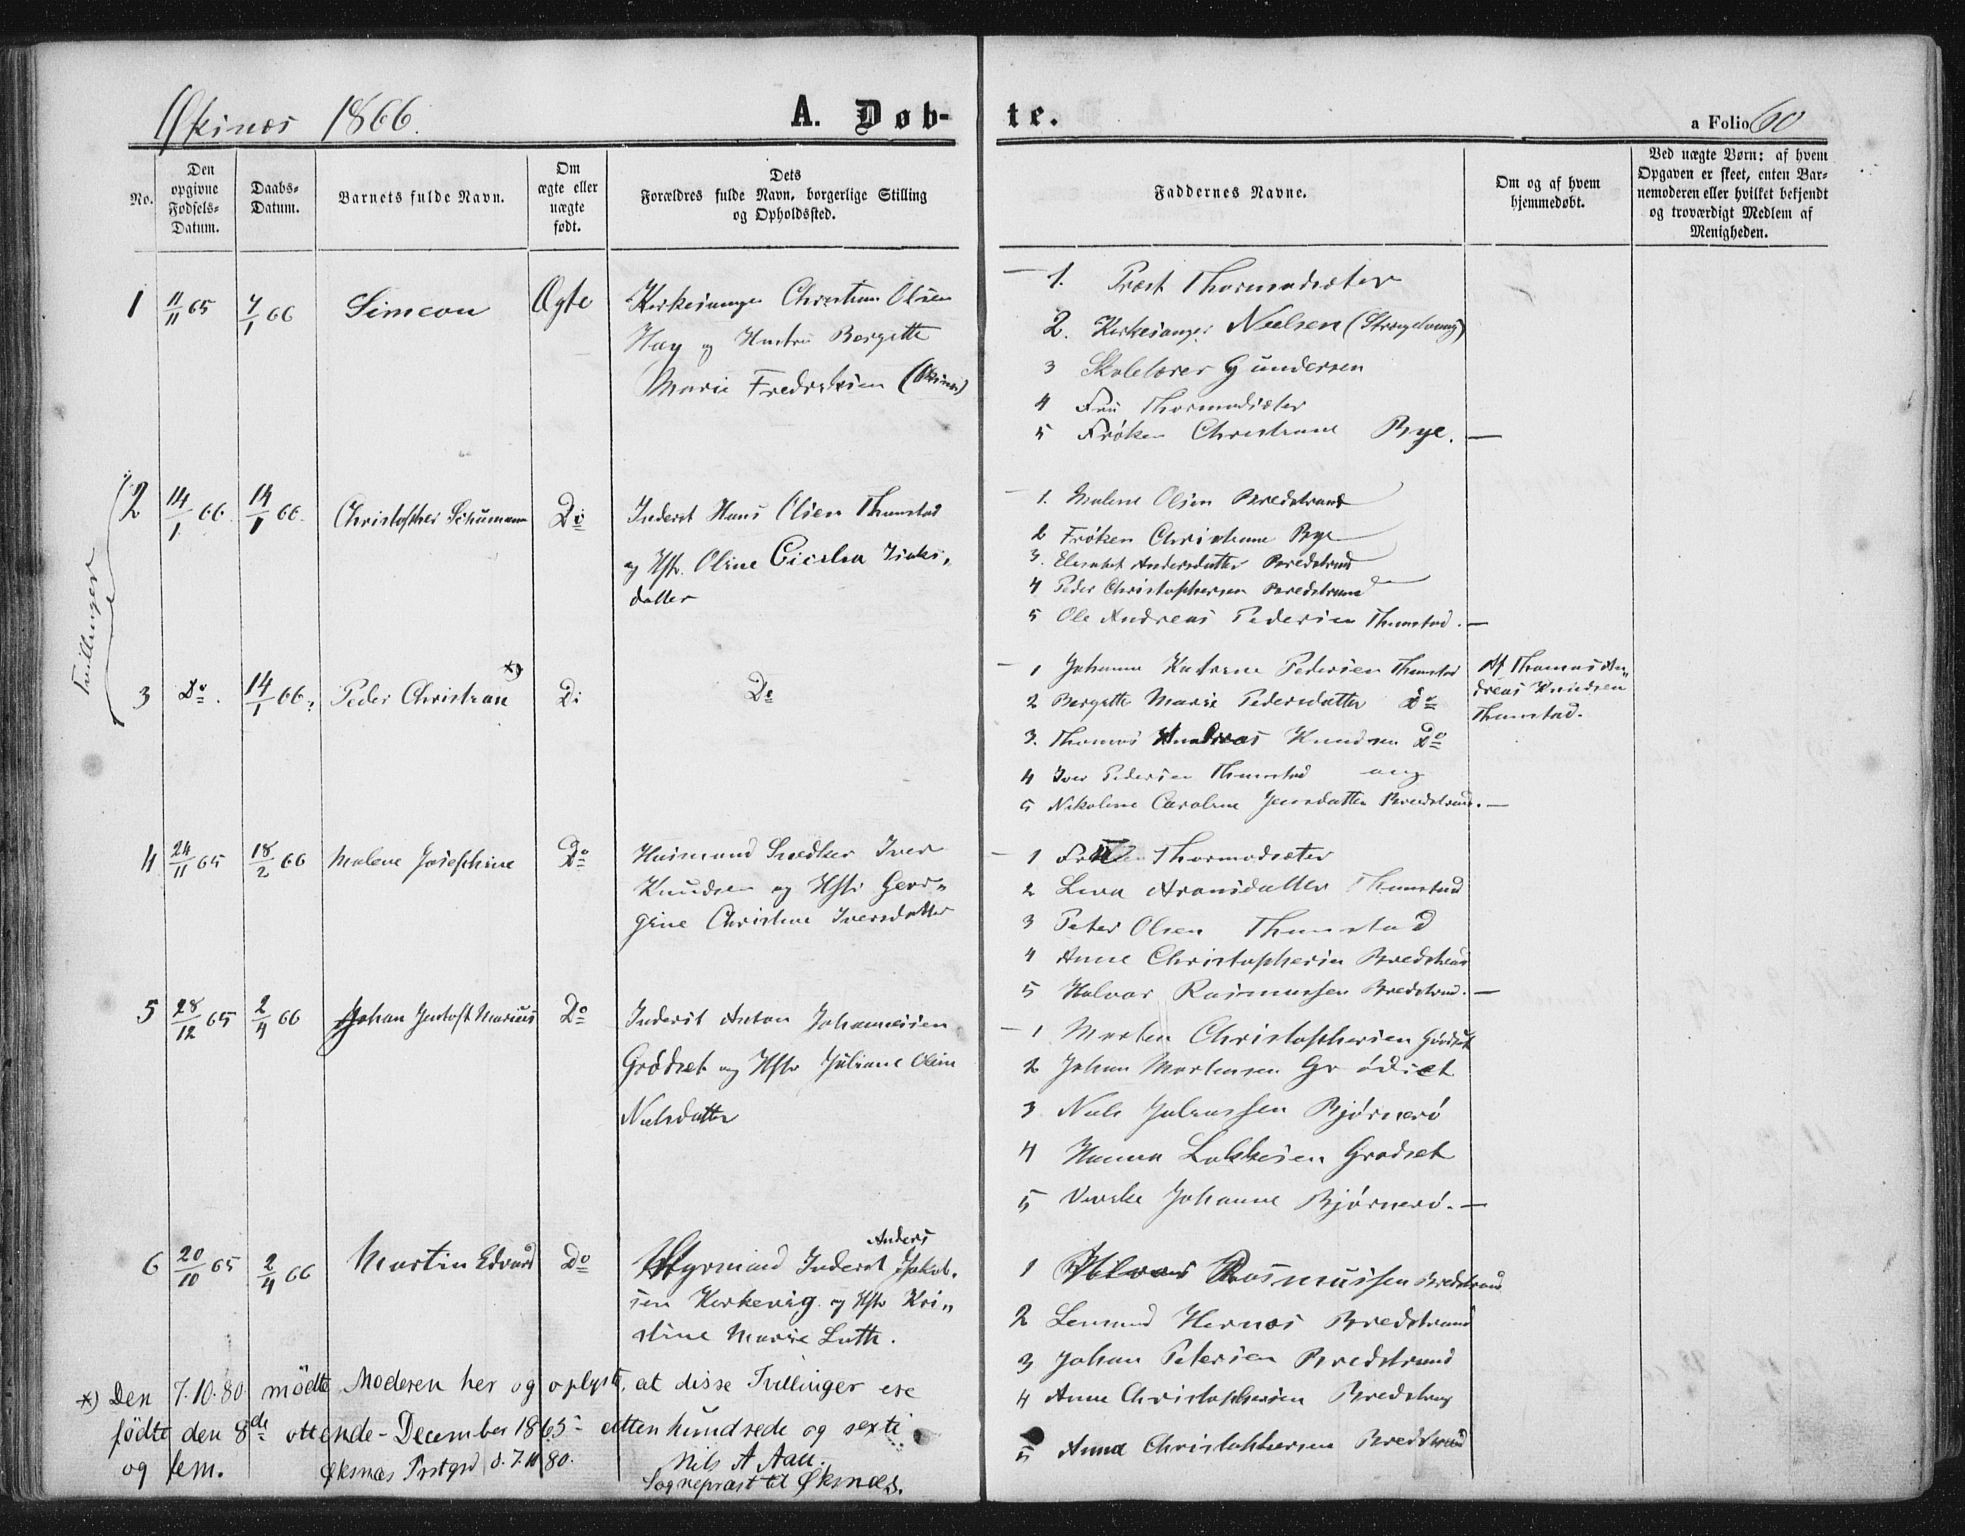 Øksnæs 1866.
A. Døb-
te.
a Folio 60
No.
Den
opgivne
Fødsels-
Datum.
Daabs-
Datum.
Barnets fulde Navn.
Om
ægte eller
uægte
født.
Dets
Forældres fulde Navn, borgerlige Stilling
og Opholdssted.
Faddernes Navne.
Om og af hvem
hjemmedøbt.
Ved uægte Børn: af hvem
Opgaven er skeet, enten Bar-
nemoderen eller hvilket bekjendt
og troværdigt Medlem af
Menigheden.
1 11/11 65 7/1 66 Simeon Ægte
Kirkesanger Christian Olsen
Hay og Hustru Bergitte
Marie Fredriksen (Øksnæs)
1. Præst Thormodsæter
2. Kirkesanger Nielsen
3 Skolelærer Gundersen
4 Fru Thormodsæter
5 Frøken Christiane Bye. —
Tvillinger
2 14/1 66. 14/1 66. Christopher Schumann Do
Inderst Hans Olsen Thunstad
og Hstr. Oline Cicilia Isaks„
datter
1. Malene Olsen Bredstrand
2 Frøken Christiane Bye
3. Elisabet Andersdatter Bredstrand
4 Peder Christophersen Bredstrand
5 Ole Andreas Pedersen Thunstad. —
3 Do. 14/1 66. Peder Christian *) Do
Do
1 Johanna Katrine Pedersen Thunstad
2 Bergitte Marie Pedersdatter Do
3. Thomas Andreas Knudsen Do
4 Iver Pedersen Thunstad ung
5 Nikoline Caroline Jensdatter Bredstrand. —
Af Thomas An„
dreas Knudsen
Thunstad.
4 24/11 65 18/2 66 Malene Josephine Do
Huusmand Snedker Iver
Knudsen og Hstr Geor„
gine Christine Iversdatter
1 Thormodsæter
2 Lina Aronsdatter Thunstad
3 Peter Olsen Thunstad
4 Anne Christophersen Bredstrand
5 Halvor Rasmussen Bredstrand. —
5 28/12 65 2/4 66 Johan Gustoft Marius Do
Inderst Anton Johannesen
Grødset og Hstr Juliane Oline
Nielsdatter
1 Morten Christophersen Grødset
2 Johan Mortensen Grødset
3 Niels Juliussen Bjørnerø
4 Hanna Lokkesen Grødset
5 Johanne Bjørnerø. —
6 20/10 65 2/4 66 Martin Edvard Do
Anders
Inderst Jakob-
sen Kirkevig. og Hstr Kri„
stine Marie Luth.
1 Rasmussen Bredstrand
2 Hernæs Bredstrand
3 Johan Petersen Bredstrand
4 Anne Christophersen Bredstrand
5 Anna Christophersen Bredstrand
*) Den 7.10.80. mödte Moderen her og oplyste, at disse Tvillinger ere
fødte den 8de ottende - December 1865 - atten hundrede og sexti
og fem. Øksnæs Prstgrd, d. 7.10.80. Nils A Aall.
Sogneprest til Øksnæs.